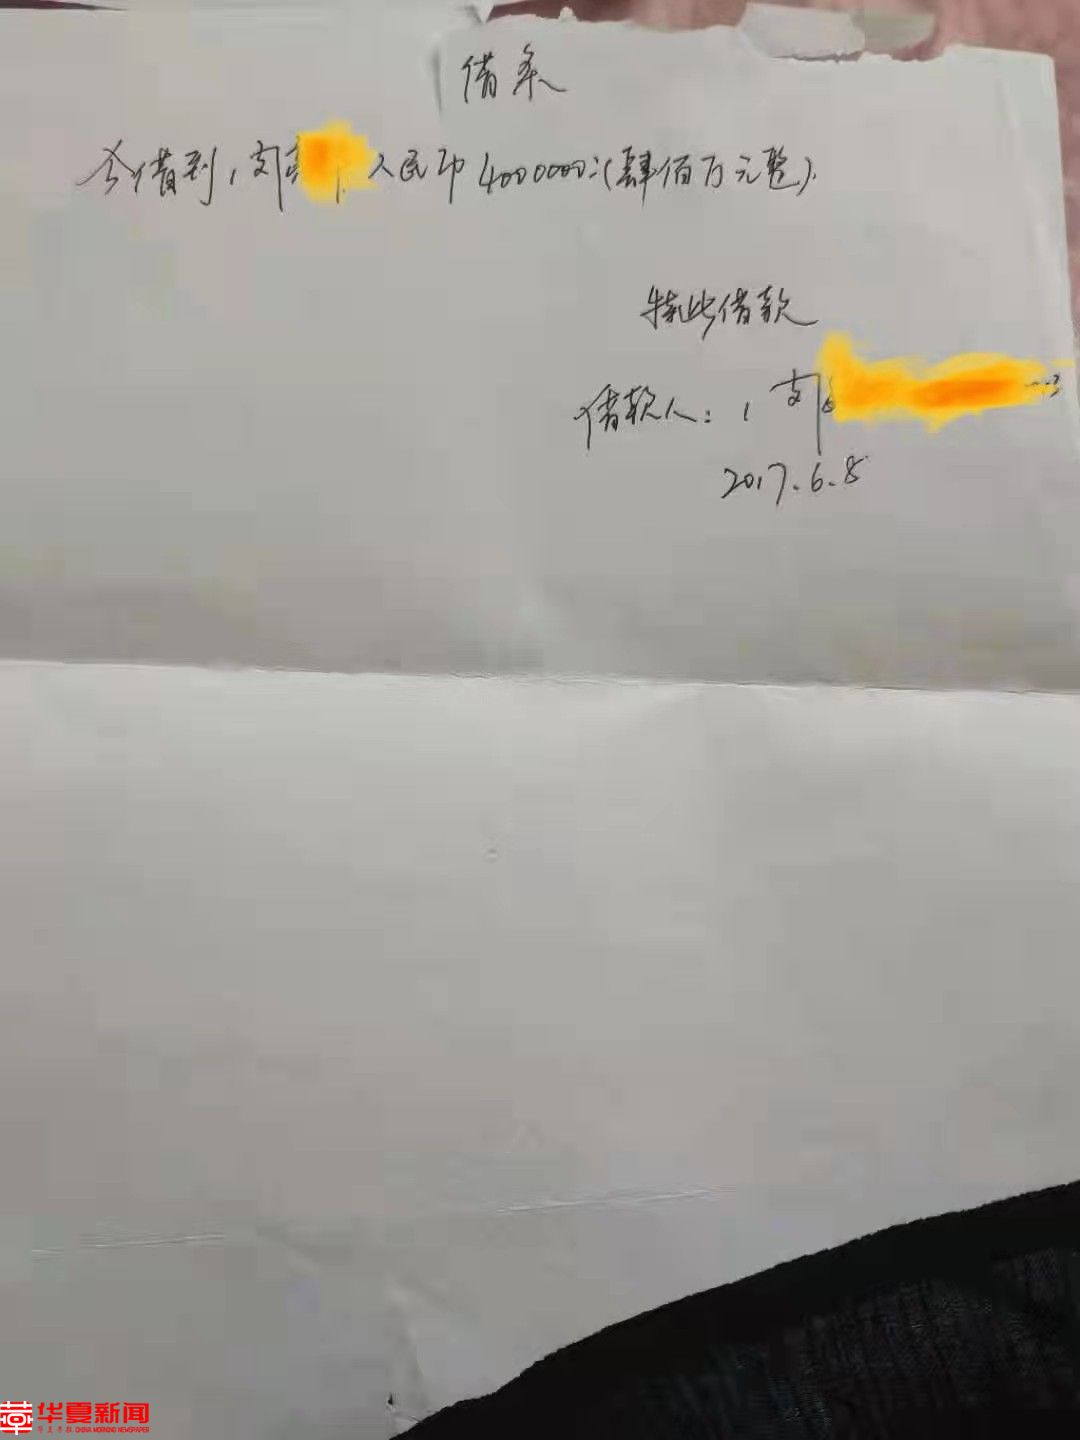 借条
今借到,刘 人民币4000000:(肆佰万元整).
特此借款
借款人:,刘
2017.6.8
华夏新闻
华夏早报 CHINA MORNING NEWSPAPER